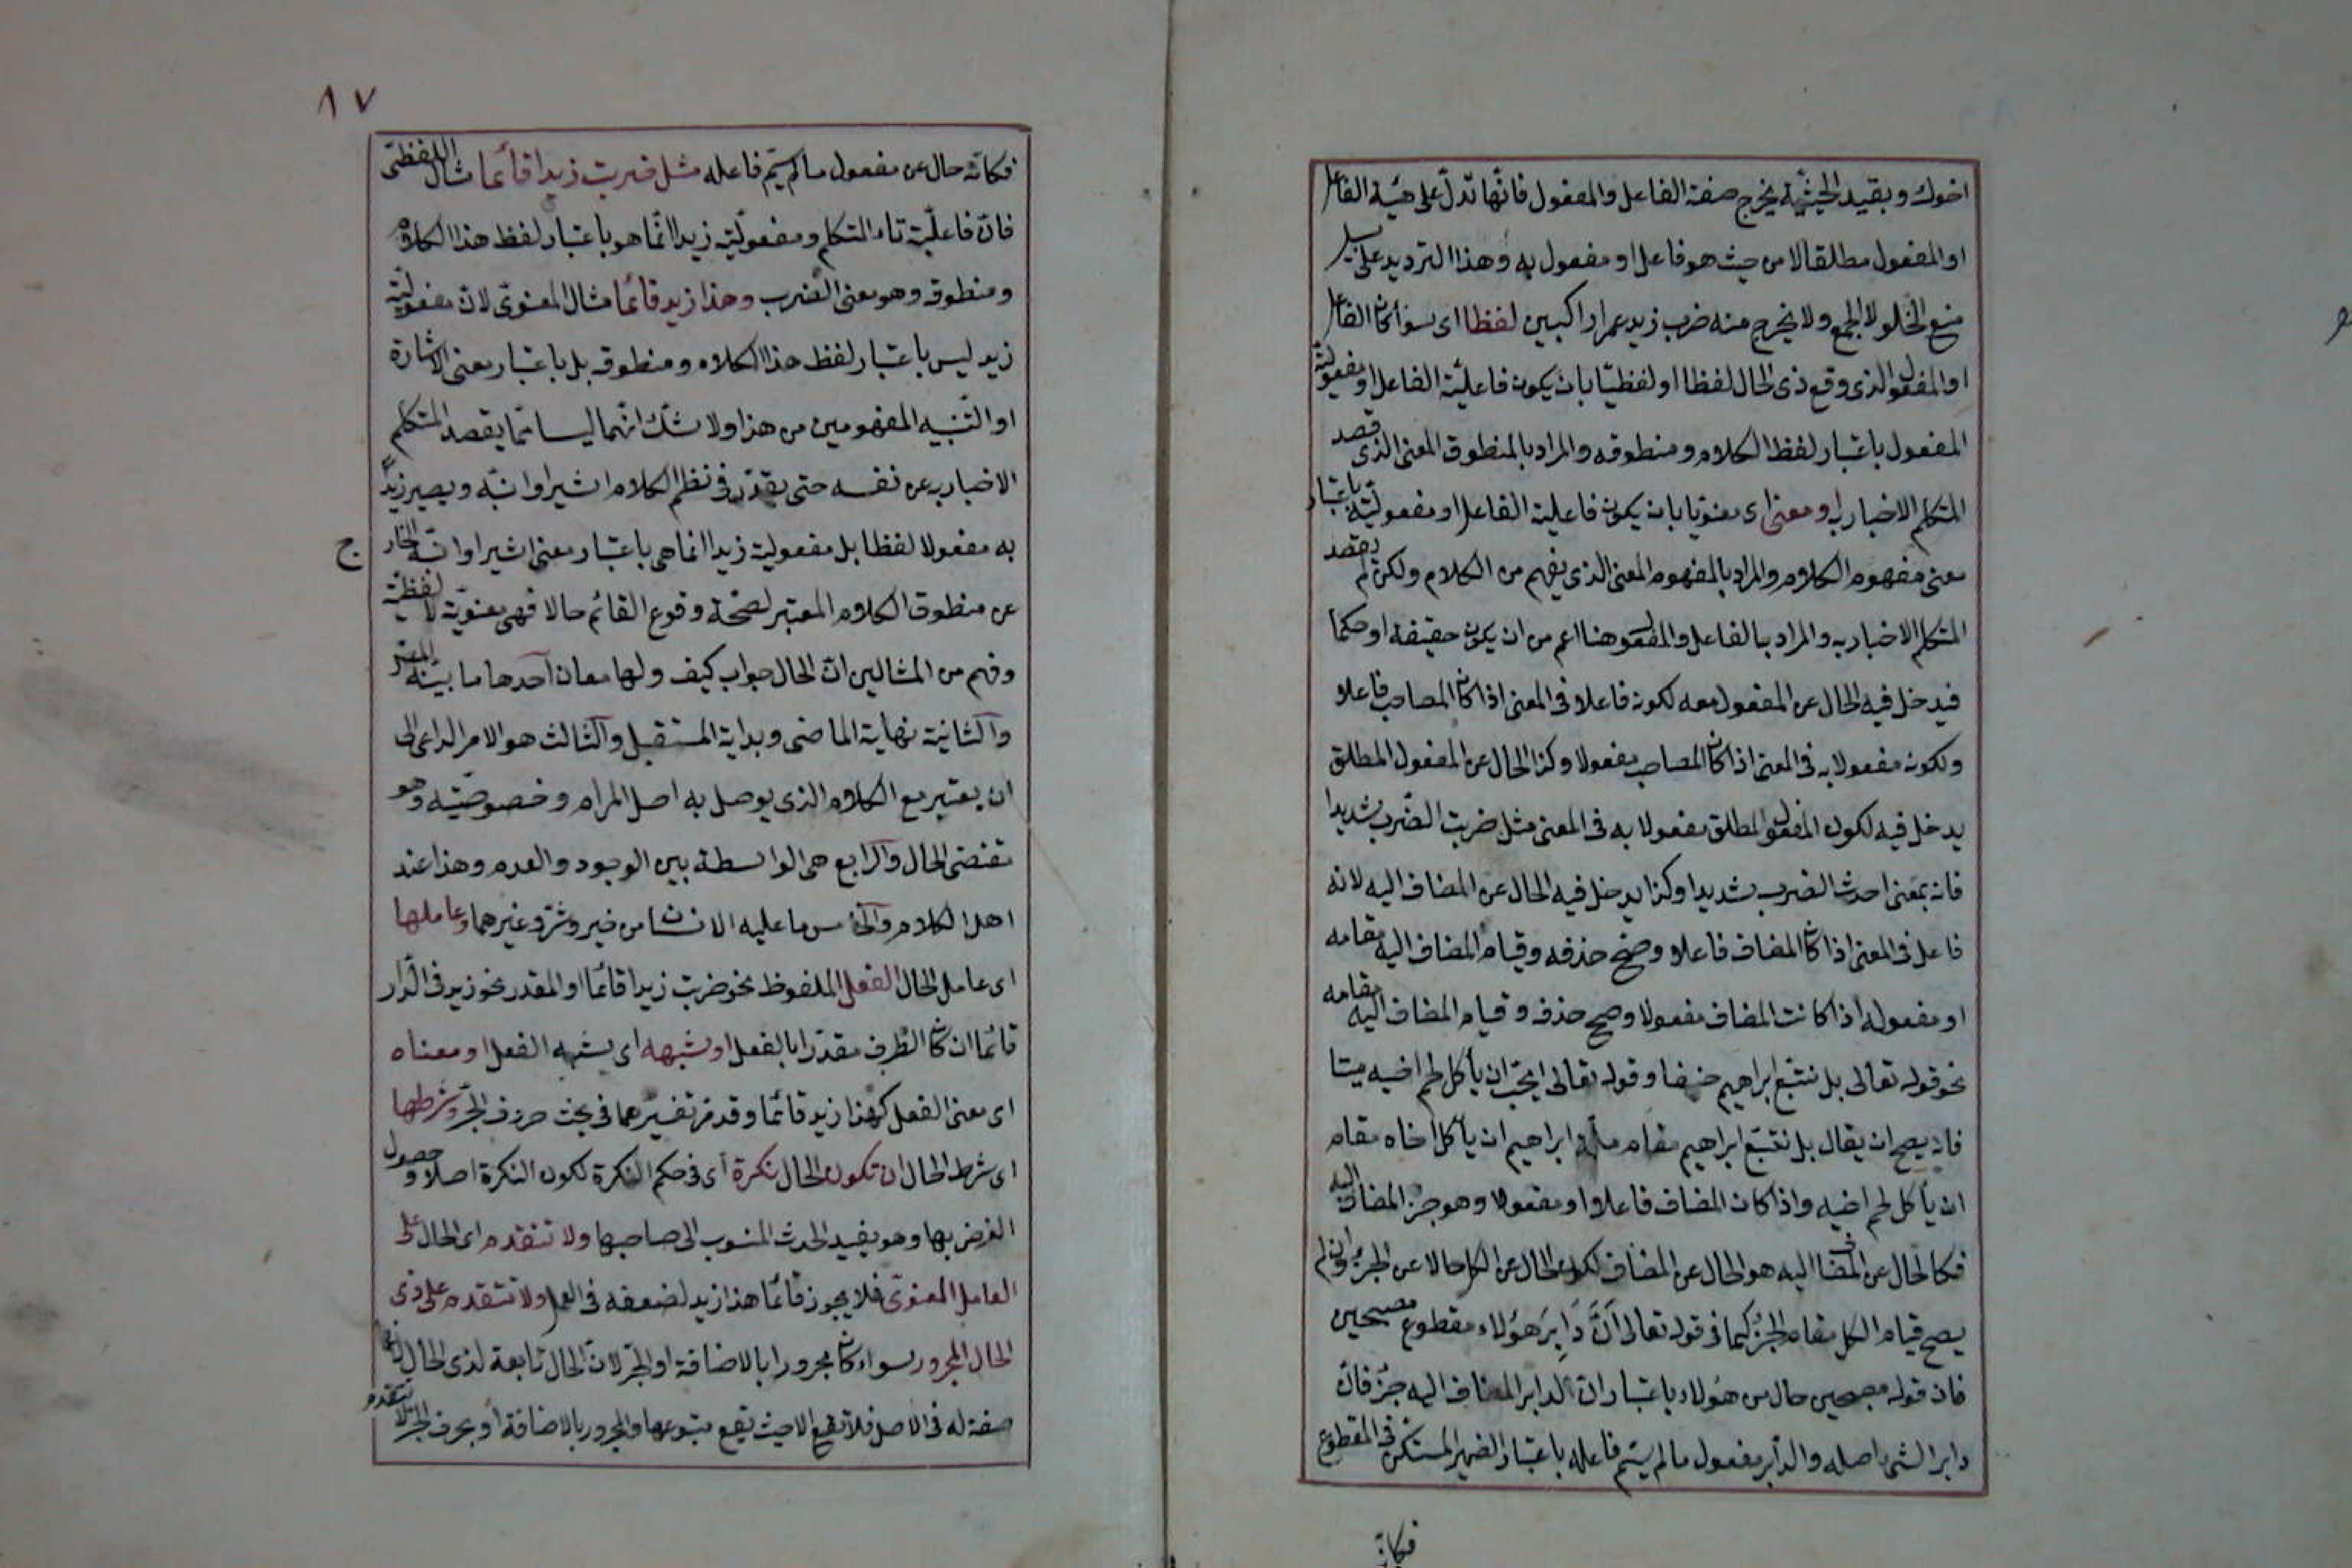 اخوك وبقيد الحيثية يخرج صفة الفاعل والمفعول فانها تدل على هيئة الفاعل
او المفعول مطلقا لا من حيث هو فاعل او مفعول به وهذا الترديد على سبيل
منع الخلو لا الجمع ولا يخرج منه ضرب زيد عمرا راكبين لفظا اى سواء كان الفاعل
او المفعول الذى وقع ذى الحال لفظا او لفظيّا بان يكون فاعليّة الفاعل او مفعوليّة
المفعول باعتبار لفظ الكلام ومنطوقه والمراد بالمنطوق المعنى الذى قصد
المتكلم الاخبار به او معنى اى معنويا بان يكون فاعلية الفاعل او مفعوليّته باعتبار
معنى مفهوم الكلام والمراد بالمفهوم المعنى الذى يفهم من الكلام ولكن لم يقصد
المتكلم الاخبار به والمراد بالفاعل والمفعول هنا اعم من ان يكون حقيقة او حكما
فيدخل فيه الحال عن المفعول معه لكونه فاعلا فى المعنى اذا كان المصاحب فاعلا
ولكونه مفعولا به فى المعنى اذا كان المصاحب مفعولا وكذا الحال عن المفعول المطلق
يدخل فيه لكون المفعول المطلق مفعولا به فى المعنى مثل ضربت الضّرب شديدا
فانه بمعنى احدث الضرب شديدا وكذا يدخل فيه الحال عن المضاف اليه لانه
فاعل فى المعنى اذا كان المضاف فاعلا وصحّ حذفه وقيام المضاف اليه مقامه
او مفعوله اذا كانت المضاف مفعولا وصح حذفه وقيام المضاف اليه مقامه
نحو قوله تعالى بل نتبع ابراهيم حنيفا وقوله تعالى ايحبّ ان يأكل لحم اخيه ميتا
فانه يصح ان يقال بل نتبع ابراهيم مقام ملة ابراهيم ان يأكل اخاه مقام
ان يأكل لحم اخيه واذا كان المضاف فاعلا او مفعولا وهو جزء المضاف اليه
فكان الحال عن المضاف اليه هو الحال عن المضاف لكون الحال عن الكل حالا عن الجزء وان لم
يصح قيام الكل مقام الجزء كما فى قوله تعالى اَنَّ دَابِرَ هَؤلاء مقطوع مصبحين
فان قوله مصبحين حال من هؤلاء باعتبار ان الدابر المضاف اليه جزء فان
دابر الشئ اصله والدّابر مفعول ما لم يسمّ فاعله باعتبار الضمير المستكن فى المقطوع
فكانّه
٨٧
فكانّه حال عن مفعول ما لم يسمّ فاعله مثل ضربت زيدا قائما مثال اللفظىّ
فانّ فاعليّة تاء المتكلم ومفعوليّة زيدا انّما هو باعتبار لفظ هذا الكلام
ومنطوقه وهو معنى الضرب وهذا زيد قائما مثال المعنوىّ لان مفعوليّة
زيد ليس باعتبار لفظ هذا الكلام ومنطوقه بل باعتبار معنى الاشارة
او التّنبيه المفهومين من هذا ولا شكّ انّهما ليسا ممّا يقصد المتكلم
الاخبار به عن نفسه حتى يقدّر فى نظم الكلام اشير او انبّه ويصير زيدٌ
به مفعولا لفظا بل مفعولية زيد انما هى باعتبار معنى اشير او انبّه الخارج
عن منطوق الكلام المعتبر لصحّة وقوع القائم حالا فهى معنويّة لا لفظيّة
وفهم من المثالين انّ الحال جواب كيف ولها معان احدها ما بيّنه المصنّف
والثانية نهاية الماضى وبداية المستقبل والثالث هو الامر الداعى الى
ان يعتبر مع الكلام الذى يوصل به اصل المرام وخصوصيّته وهو
تقتضى الحال والرابع هى الواسطة بين الوجود والعدم وهذا عند
اهل الكلام والخامس ما عليه الانسان من خير وشرّ وغيرهما وعاملها
اى عامل الحال الفعل الملفوظ نحو ضربت زيدا قائما او المقدر نحو زيد فى الدّار
قائما ان كان الظرف مقدّرا بالفعل او شبهه اى يشبه الفعل او معناه
اى معنى الفعل كهذا زيد قائما وقد مرّ تفسيرهما فى بحث حروف الجرّ وشرطها
اى شرط الحال ان تكون الحال نكرة اى فى حكم النكرة لكون النكرة اصلا وحصول
الغرض بها وهو يفيد الحدث المنسوب الى صاحبها ولا تتقدم اى الحال على
العامل المعنوىّ فلا يجوز قائما هذا زيد لضعفه فى العمل ولا تتقدم على ذى
الحال المجرور سواء كان مجرورا بالاضافة او الجرّ لانّ الحال تابعة لذى الحال لانها
صفة له فى الاصل فلا تقع الا حيث تقع متبوعها والمجرور بالاضافة او بحرف الجرّ لا تتقدم